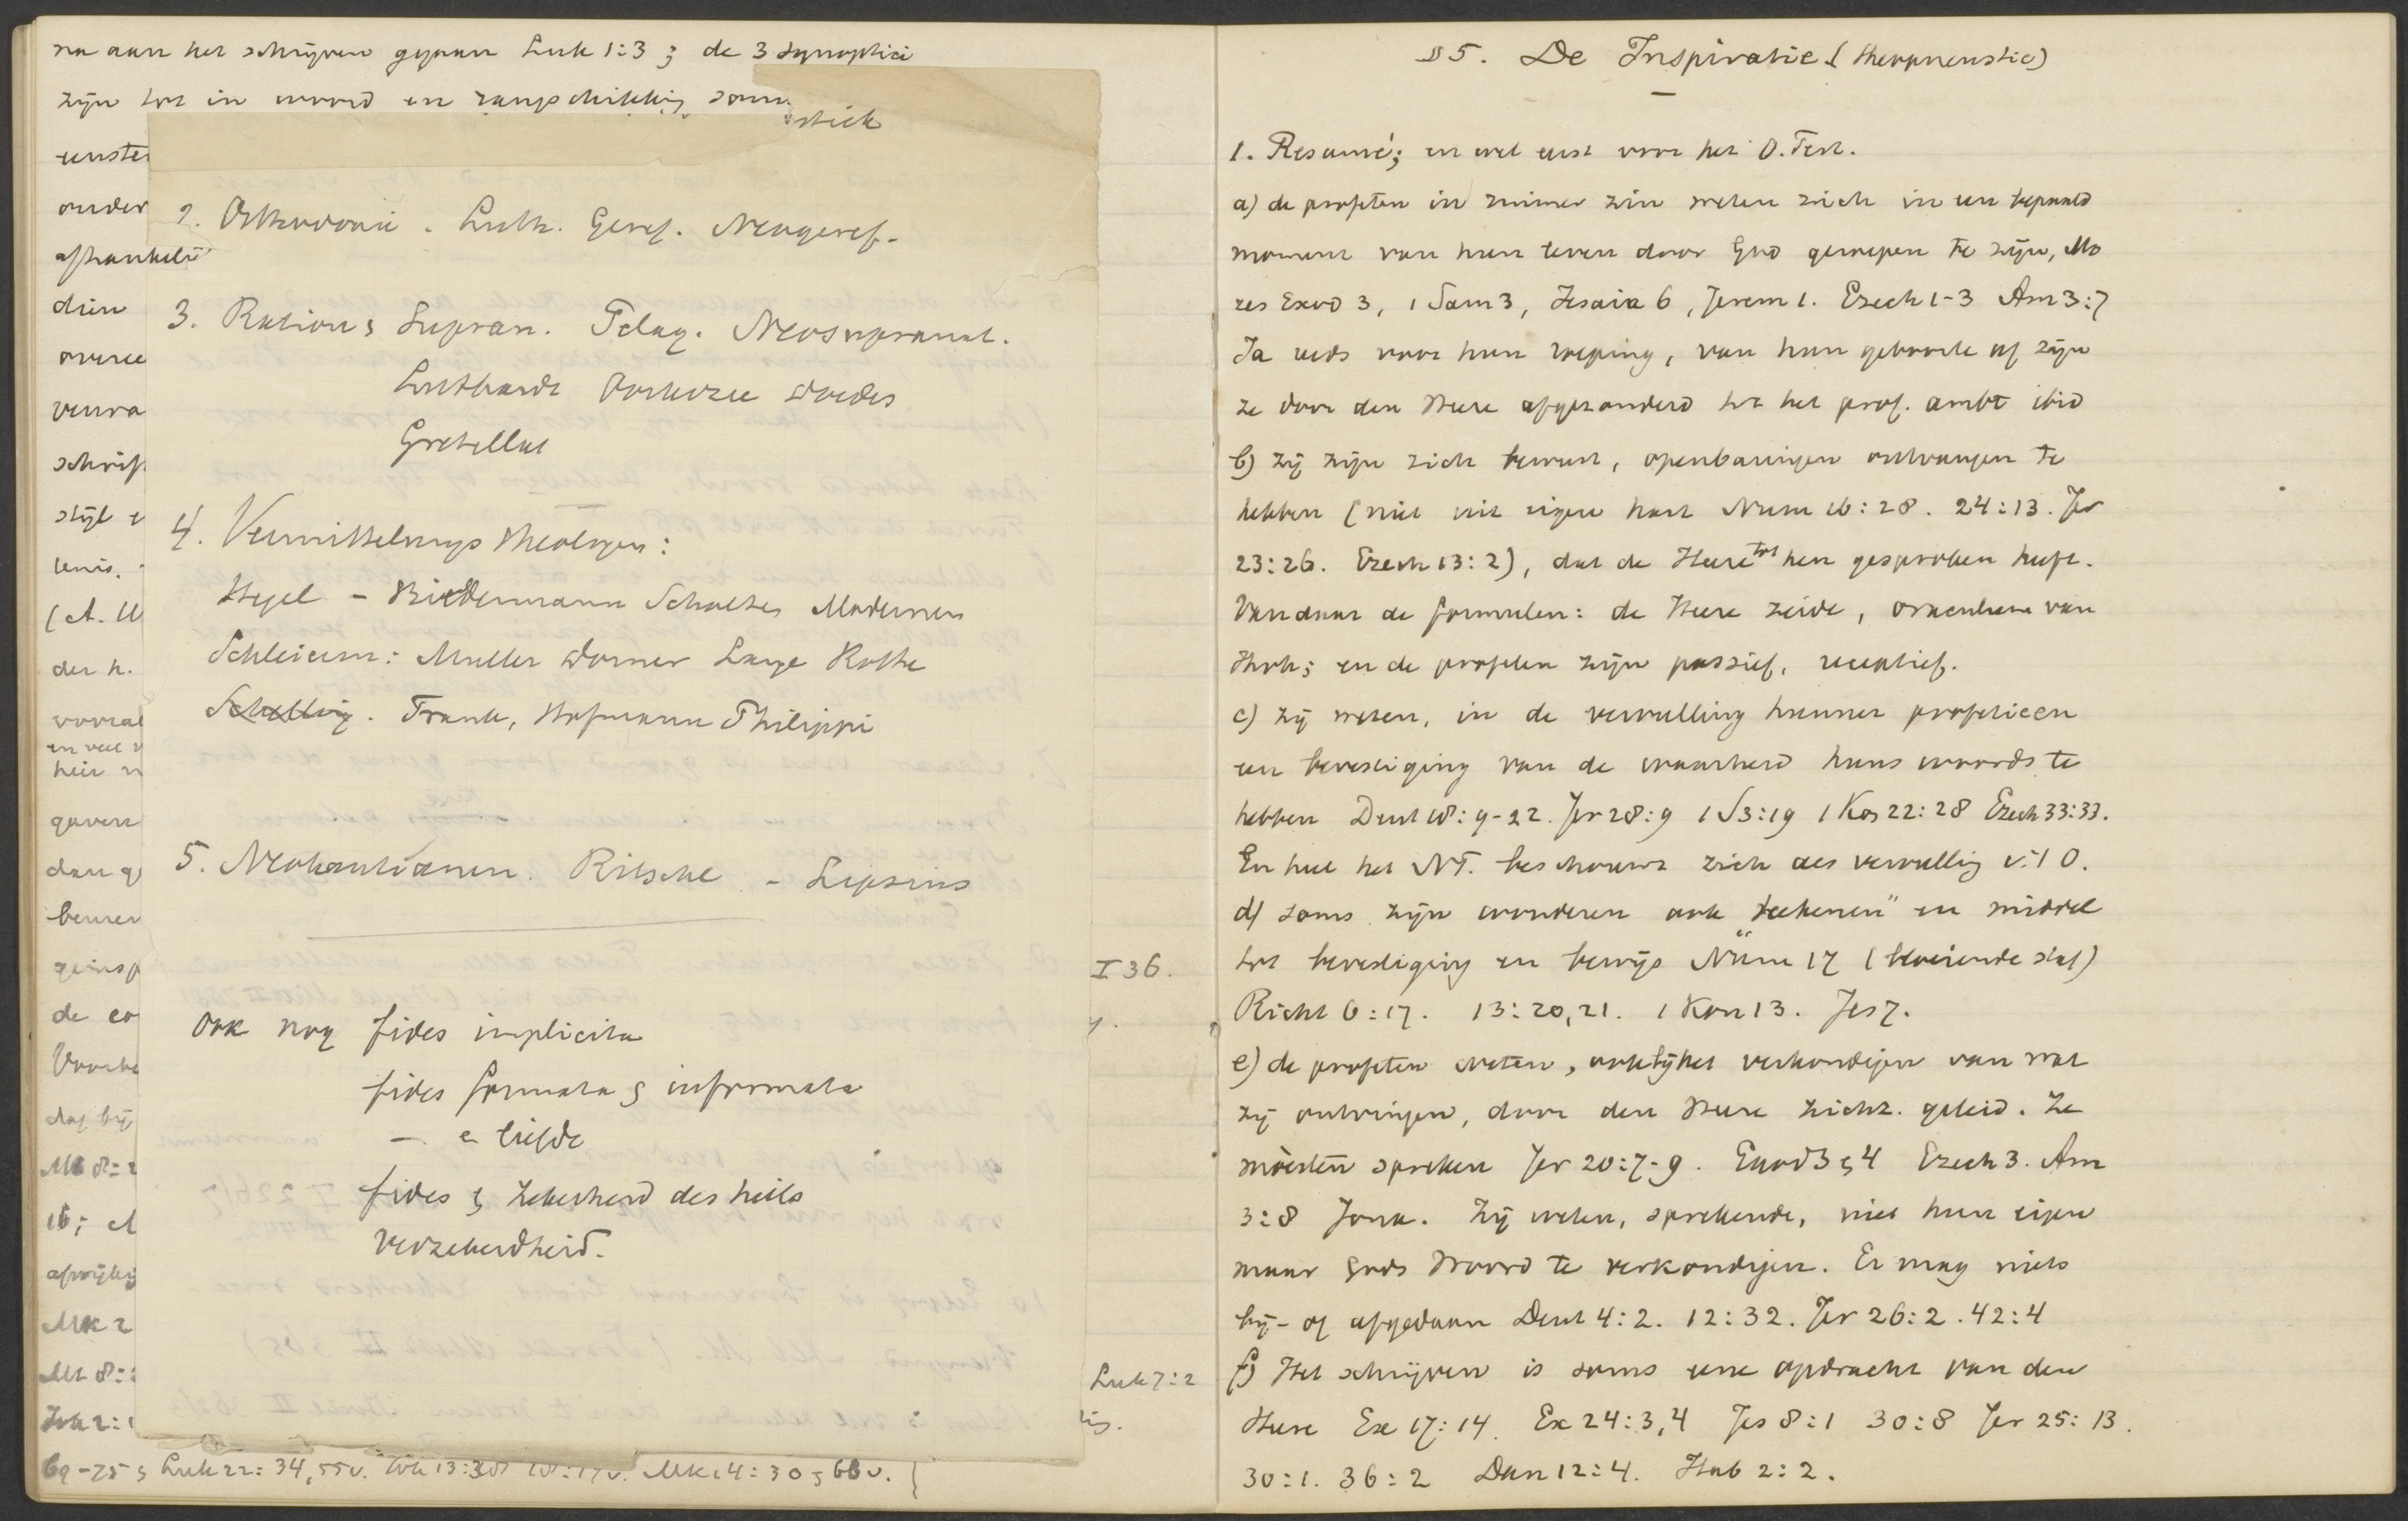 na aan het schrijven gegaan Luk 1:3; de 3 synoptici
zijn tot in woord en rangschikking
stich
eenste
onder
afhankelij
dien
overee
veura
schrif
stijl e
(A. W
der h.
vooral
en veel v
heir
gaven
dan g
bewer
geinsp
de eo
dag bij
Mt 8:2
16; A
afwijkig
Mk 2
Mt 8:
Joh 2:1
69-75 & Luk 22:34, 55v. Joh 13:38 18:17v. Mk 14:30 & 66v.
2. Orthodoxie. Luth. Geref. Neogeref.
3. Ration & Supran. Pelag. Neosupranat.
Luthardt Oosterzee Doedes
Gretillat
4. Vermittelungs theologen:
Hegel - Biedermann Scholten Modernen
Schleierm: Muller Dorner Lange Rothe
Schelling. Frank, Hofmann Philippi
5. Neokantianen. Ritschl - Lipsius
Ook nog fides implicita
fides formata & informata
— & liefde
fides & Zekerheid des heils
Verzekerdheid.
I 36.
y.
Luk 7:2
ig.
§ 5. De Inspiratie (theopneustie)
1. Resumé; en wel eerst voor het O. Test.
a) de profeten in ruimer zin weten zich in een bepaald
moment van hun leven door God geroepen te zijn, Mo
zes Exod 3, 1 Sam 3, Jesaia 6, Jerem 1. Ezech 1-3 Am 3:7
Ja reeds voor hun roeping, van hun geboorte af zijn
ze door den Heere afgezonderd tot het prof. ambt ibid
b) zij zijn zich bewust, openbaringen ontvangen te
hebben (niet uit eigen hart Num 16:28. 24:13. Jer
23:26. Ezech 13:2), dat de Heere tot hen gesproken heeft.
Vandaar de formulen: de Heere zeide, orakulum van
Jhvh; en de profeten zijn passief, receptief.
c) zij weten, in de vervulling hunner profetieen
een bevestiging van de waarheid huns woords te
hebben Deut 18:9-22. Jer 28:9 1 S 3:19 1 Kon 22:28 Ezech 33:33.
En heel het NT. beschouwt zich als vervulling v. 't O.
d) soms zijn wonderen ook "teekenen" en middel
tot bevestiging en bewijs Num 17 (bloeiende staf)
Richt 6:17. 13:20,21. 1 Kon 13. Jes 7.
e) de profeten weten, ook bij het verkondigen van wat
zij ontvingen, door den Heere zich z. geleid. Ze
moesten spreken Jer 20:7-9. Exod 3 & 4 Ezech 3. Am
3:8 Jona. Zij weten, sprekende, niet hun eigen
maar Gods Woord te verkondigen. Er mag niets
bij- of afgedaan Deut 4:2. 12:32. Jer 26:2. 42:4
f) Het schrijven is soms eene opdracht van den
Heere Ex 17:14. Ex 24:3,4 Jes 8:1 30:8 Jer 25:13.
30:1. 36:2 Dan 12:4. Hab 2:2.